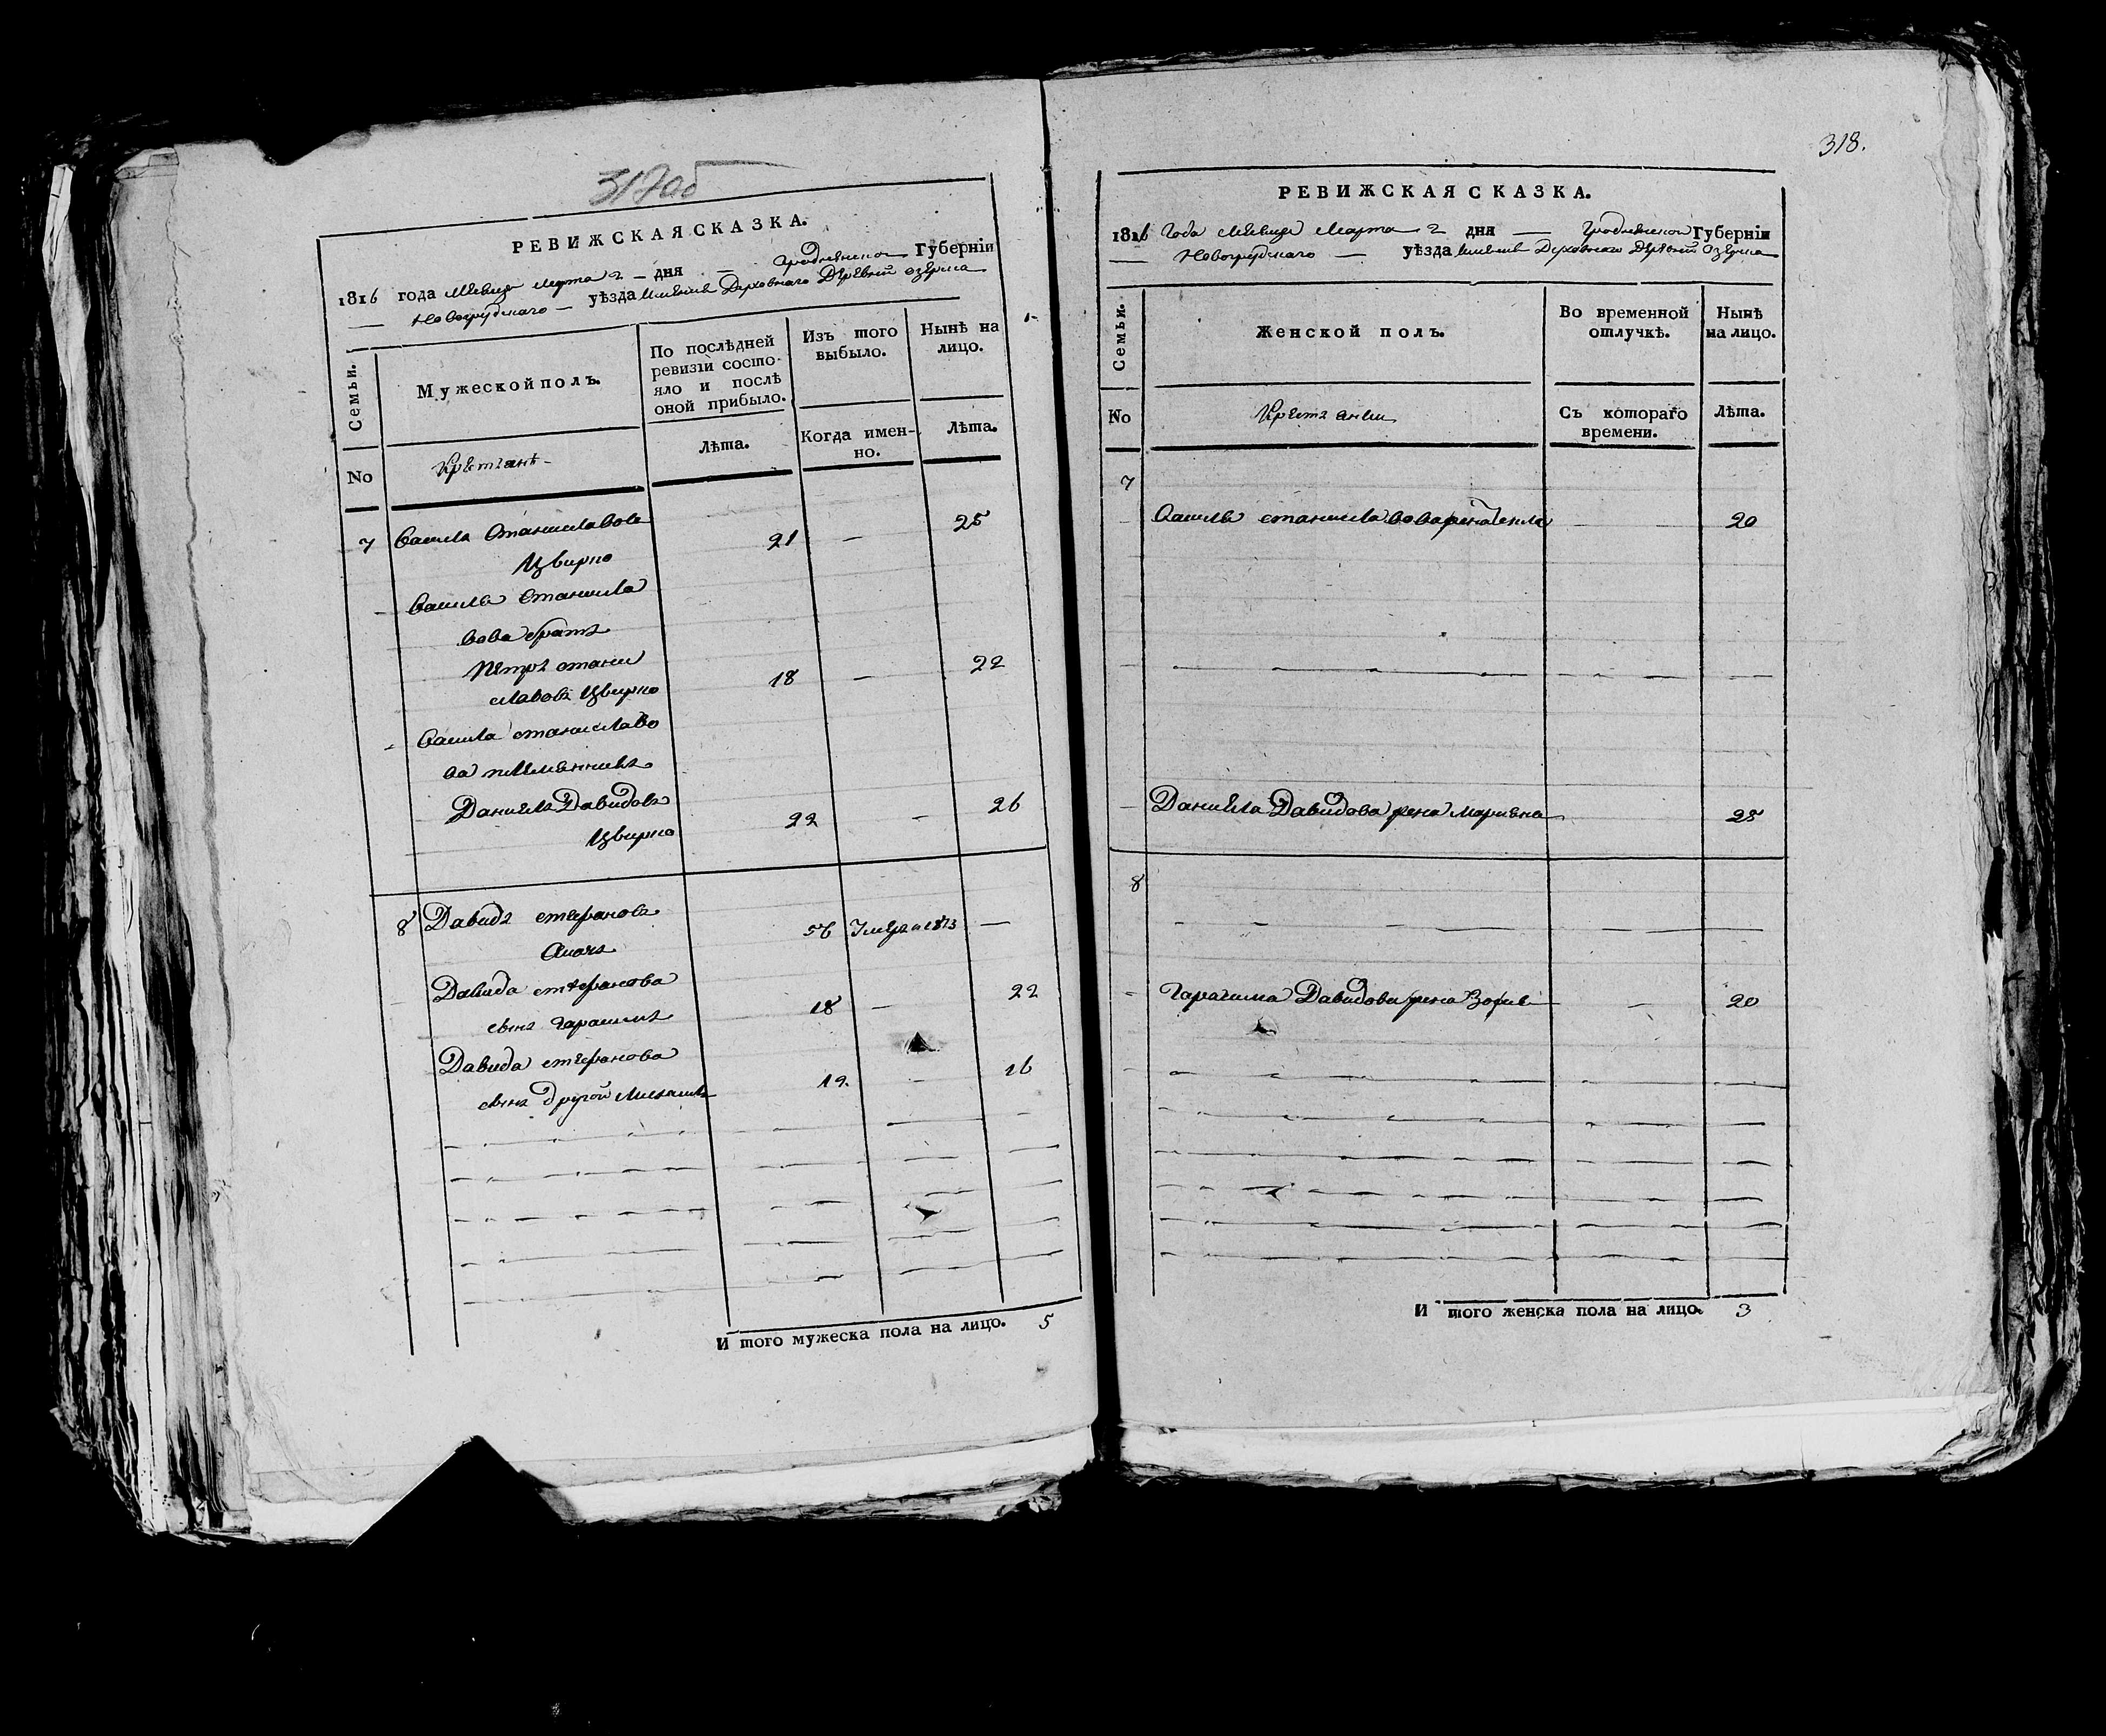 317об
РЕВИЖСКАЯ СКАЗКА.
1816 года Месяца Марта 2 – дня – Гродненской Губерніи
— Новогрудскаго — уѣзда Имѣнія Духовнаго Деревни Озерца
Семьи.
Мужеской полъ.
По послѣдней ревизіи состояло и послѣ оной прибыло.
Изъ того выбыло.
Нынѣ на лицо.
No
Лѣта.
Когда именно.
Лѣта.
7 Станиславовъ 21 — 25
Цвирко
Станисла
вова братъ
Петръ стани 18 — 22
славовъ Цвирко
станиславо
ва племянникъ
Данила Давидовъ 22 — 26
Цвирко
8 Давидъ стефановъ 56 Умеръ в 1813 —
Давида стефанова 18 — 22
сынъ Гарасимъ
Давида стефанова 12 — 16
сынъ другой
И того мужеска пола на лицо. 5
318.
РЕВИЖСКАЯ СКАЗКА.
1816 Года Месяца Марта 2 дня — Гродненской Губерніи
— Новогрудскаго — уѣзда Имѣнія Духовнаго Деревни Озерца
Семьи.
Женской полъ.
Во временной отлучкѣ.
Нынѣ на лицо.
No
Съ котораго времени.
Лѣта.
7
станиславова жена — — 20
Данила Давидова жена Марияна — 25
8
Гарасима Давидова жена Зофия — — 20
И того женска пола на лицо. 3